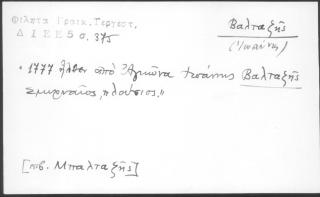 Φίλητα Γραικ. Τεργεστ.
Δ Ι Ε Ε 5 σ. 375
Βαλταξῆς
(Ἰωάννης)
• 1777 ἦλθεν ἀπὸ Ἀγκῶνα Ἰωάννης Βαλταξῆς
Σμυρναῖος, "πλούσιος"
[πβ. Μπαλταξῆς]